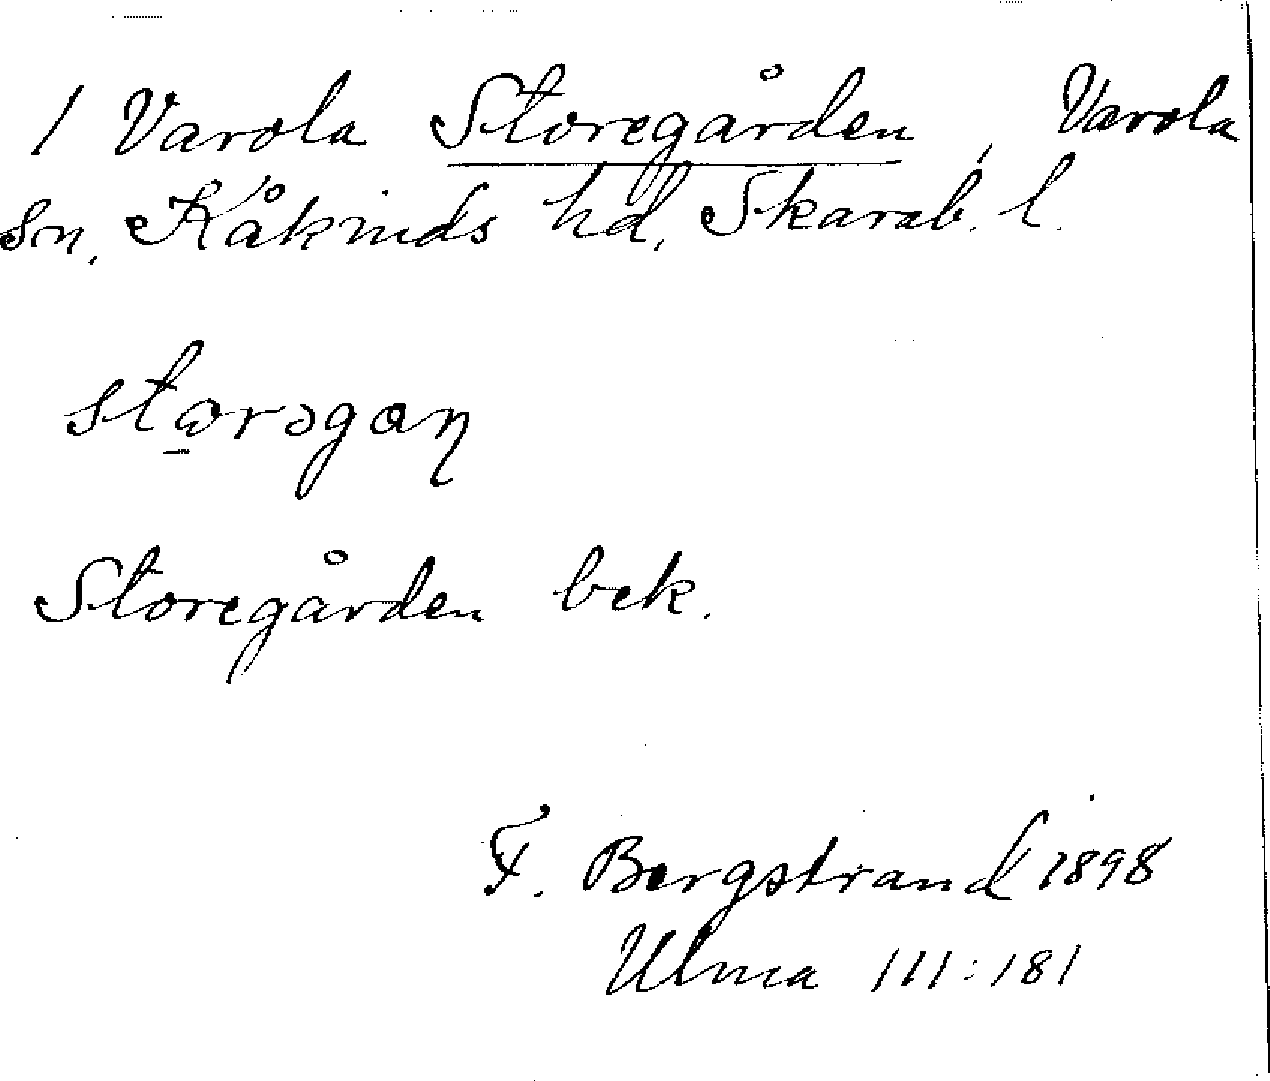 1 Varola Storegården, Varola
sn, Kåkinds hd, Skarab. l.
storəgan
Storegården bek.
F. Bergstrand 1898
Ulma 111:181